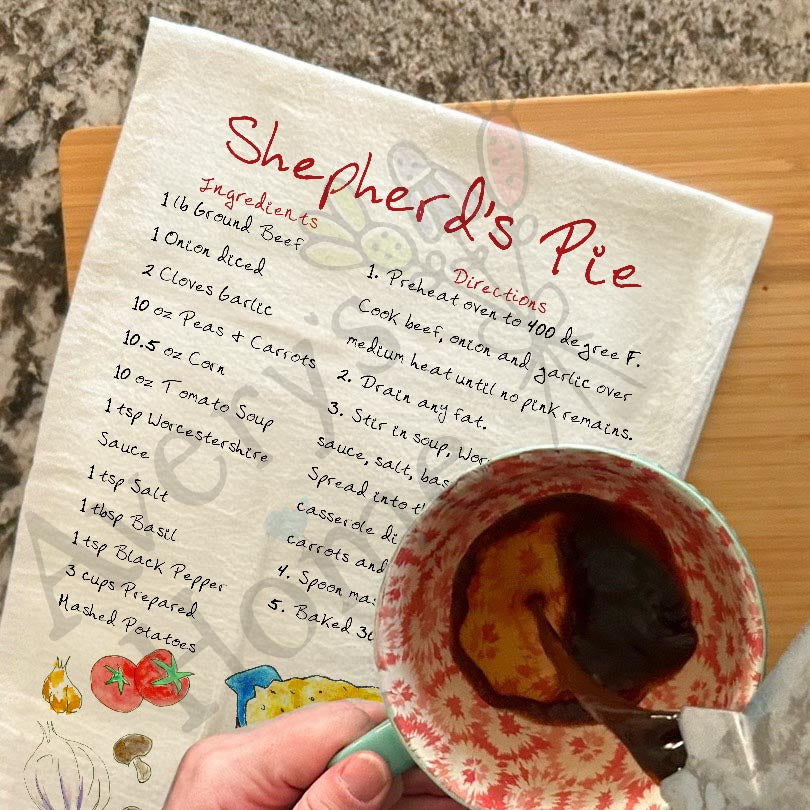 Shepherd's Pie
Ingredients
1 lb Ground Beef
1 Onion diced
2 Cloves Garlic
10 oz Peas + Carrots
10.5 oz Corn
10 oz Tomato Soup
1 tsp Worcestershire
Sauce
1 tsp Salt
1 tbsp Basil
1 tsp Black Pepper
3 cups Prepared
Mashed Potatoes
Directions
1. Preheat oven to 400 degree F.
Cook beef, onion and garlic over
medium heat until no pink remains.
2. Drain any fat.
3. Stir in soup, Wor
sauce, salt, bas
Spread into t
casserole di
carrots and
4. Spoon mas
5. Baked 30
Avery's
Home